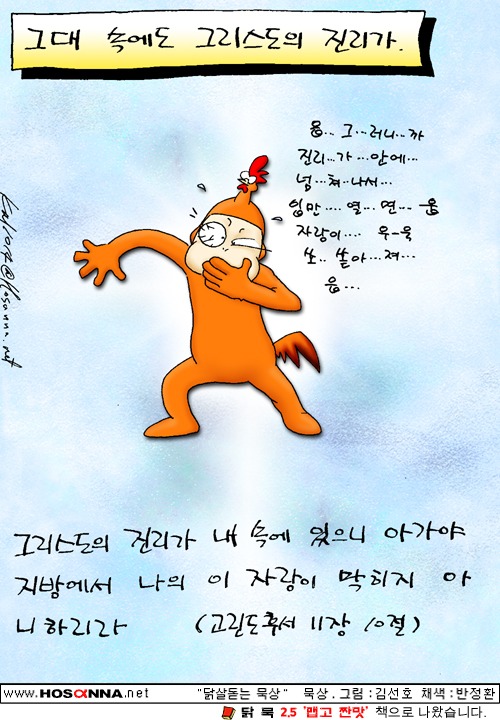 그대 속에도 그리스도의 진리가.
웁... 그...러니...까
진리...가...안에...
넘...쳐..나서...
입만....열...연... 웁
자랑이.... 우-욱
쏘.. 쏟아...져...
읍...
그리스도의 진리가 내 속에 있으니 아가야
지방에서 나의 이 자랑이 막히지 아
니하리라 (고린도후서 11장 10절)
www.HOSANNA.net "닭살돋는 묵상" 묵상.그림:김선호 채색:반정환
닭 묵 2.5 '맵고 짠맛' 책으로 나왔습니다.